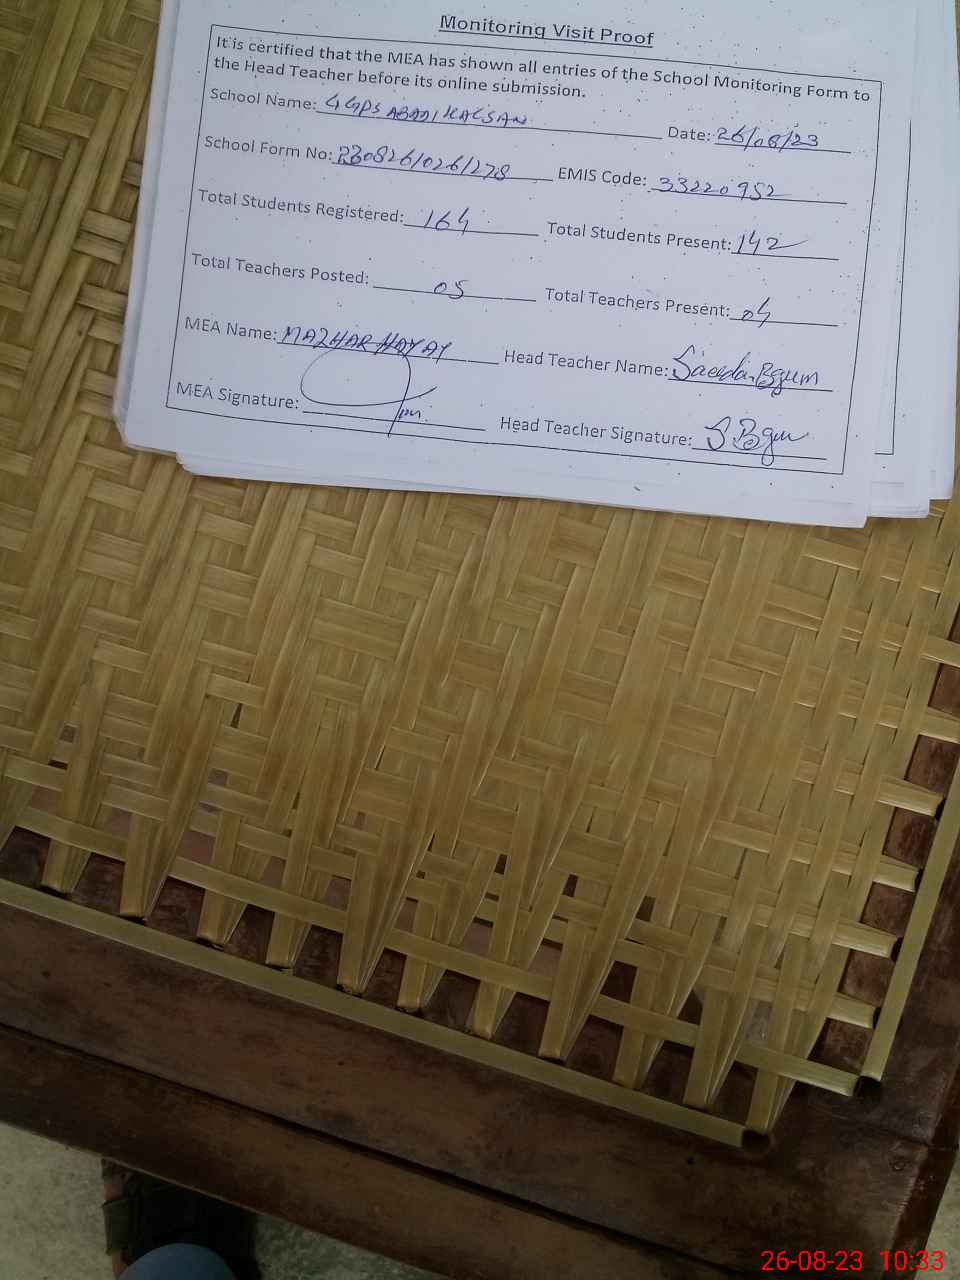 Monitoring Visit Proof
It is certified that the MEA has shown all entries of the School Monitoring Form to
the Head Teacher before its online submission.
School Name: GGPS ABADI KALSAN Date: 26/08/23
School Form No: 230826/026/278 EMIS Code: 33220952
Total Students Registered: 164 Total Students Present: 142
Total Teachers Posted: 05 Total Teachers Present: 04
MEA Name: MAZHAR HAYAT Head Teacher Name: Saeeda Bgum
MEA Signature: Head Teacher Signature: S Bgum
26-08-23 10:33